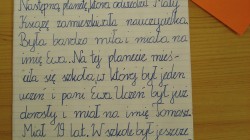 Następną planetę, którą odwiedził Mały
Książę zamieszkiwała nauczycielka.
Była bardzo miła i miała na
imię Ewa. Na tej planecie mieś-
ciła się szkoła, w której był jeden
uczeń i pani Ewa. Uczeń był już
dorosły i miał na imię Tomasz.
Miał 19 lat. W szkole był jeszcze